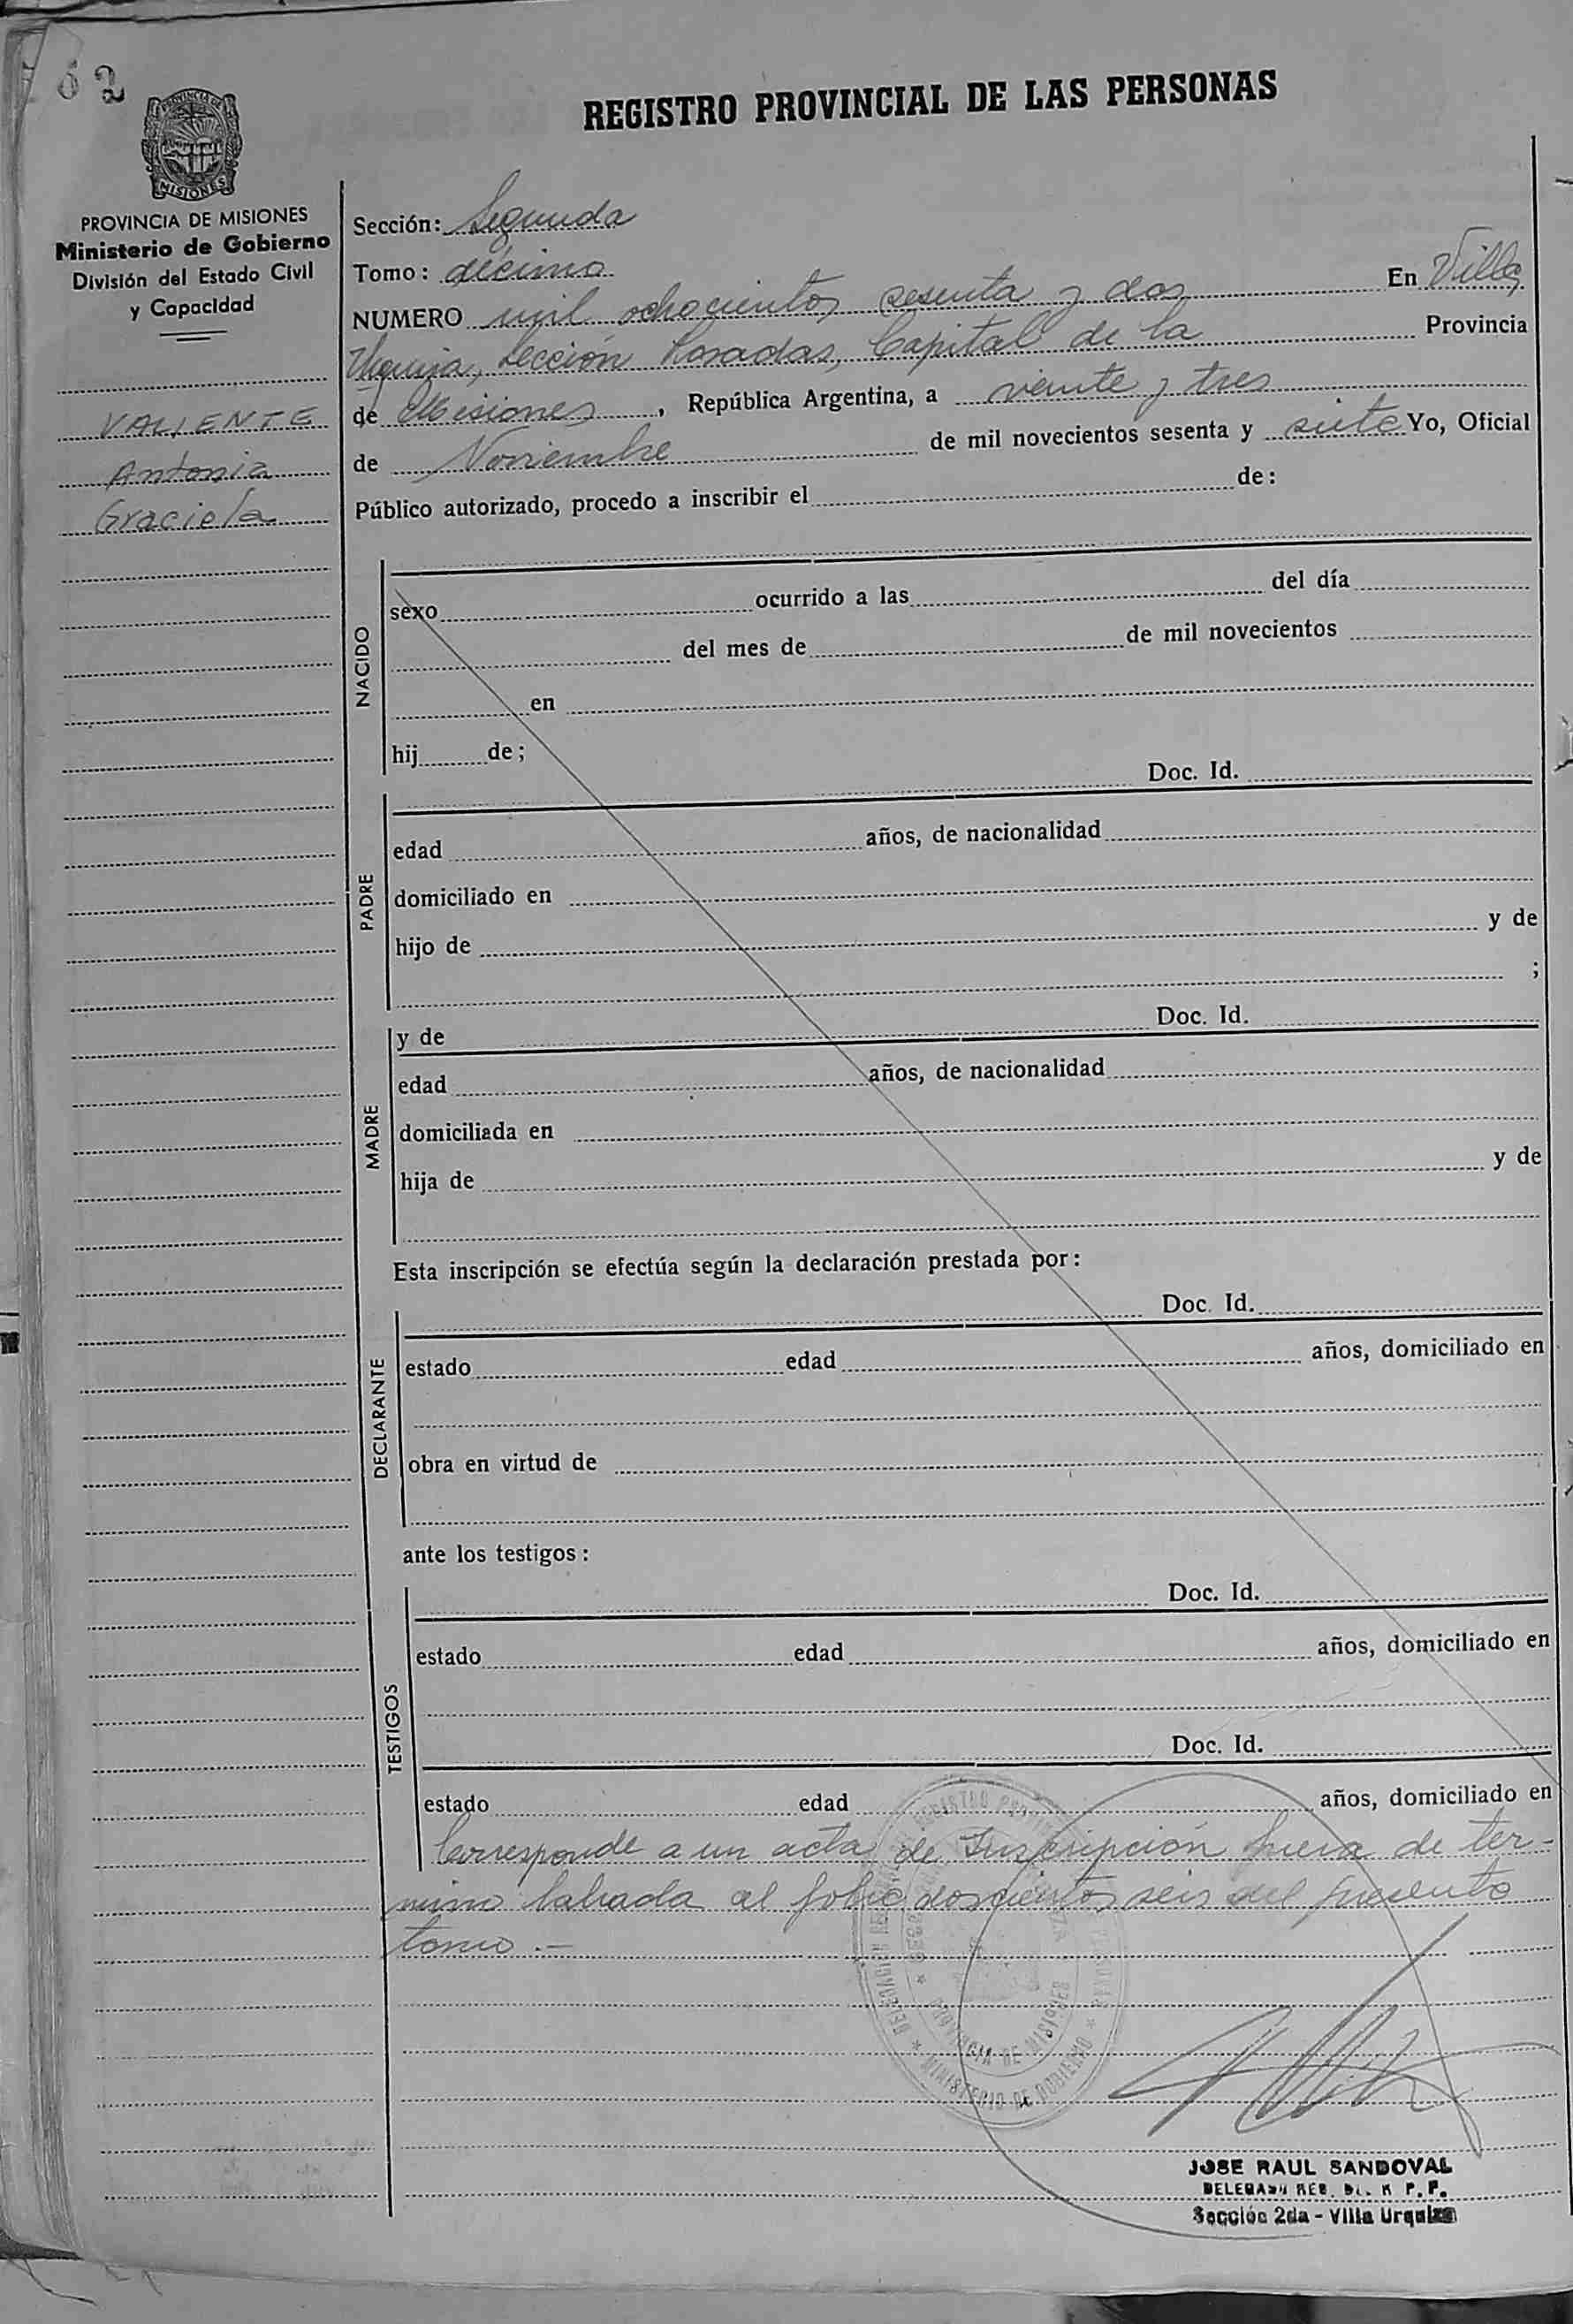 62
REGISTRO PROVINCIAL DE LAS PERSONAS
PROVINCIA DE MISIONES
Ministerio de Gobierno
División del Estado Civil
y Capacidad
VALIENTE
Antonia
Graciela
Sección: Segunda
Tomo: décimo
NUMERO mil ochocientos sesenta y dos En Villa
Urquiza, Sección Posadas, Capital de la Provincia
de Misiones, República Argentina, a veinte y tres
de Noviembre de mil novecientos sesenta y siete Yo, Oficial
Público autorizado, procedo a inscribir el de:
NACIDO
sexo ocurrido a las del día
del mes de de mil novecientos
en
hij de;
Doc. Id.
PADRE
edad años, de nacionalidad
domiciliado en
hijo de y de
;
y de Doc. Id.
MADRE
edad años, de nacionalidad
domiciliada en
hija de y de
Esta inscripción se efectúa según la declaración prestada por:
Doc. Id.
DECLARANTE
estado edad años, domiciliado en
obra en virtud de
ante los testigos:
Doc. Id.
TESTIGOS
estado edad años, domiciliado en
Doc. Id.
estado edad años, domiciliado en
Corresponde a un acta de Inscripción fuera de ter-
mino labrada al folio doscientos seis del presente
tomo.-
PROVINCIA DE MISIONES
MINISTERIO DE GOBIERNO
JOSE RAUL SANDOVAL
Sección 2da - Villa Urquiza